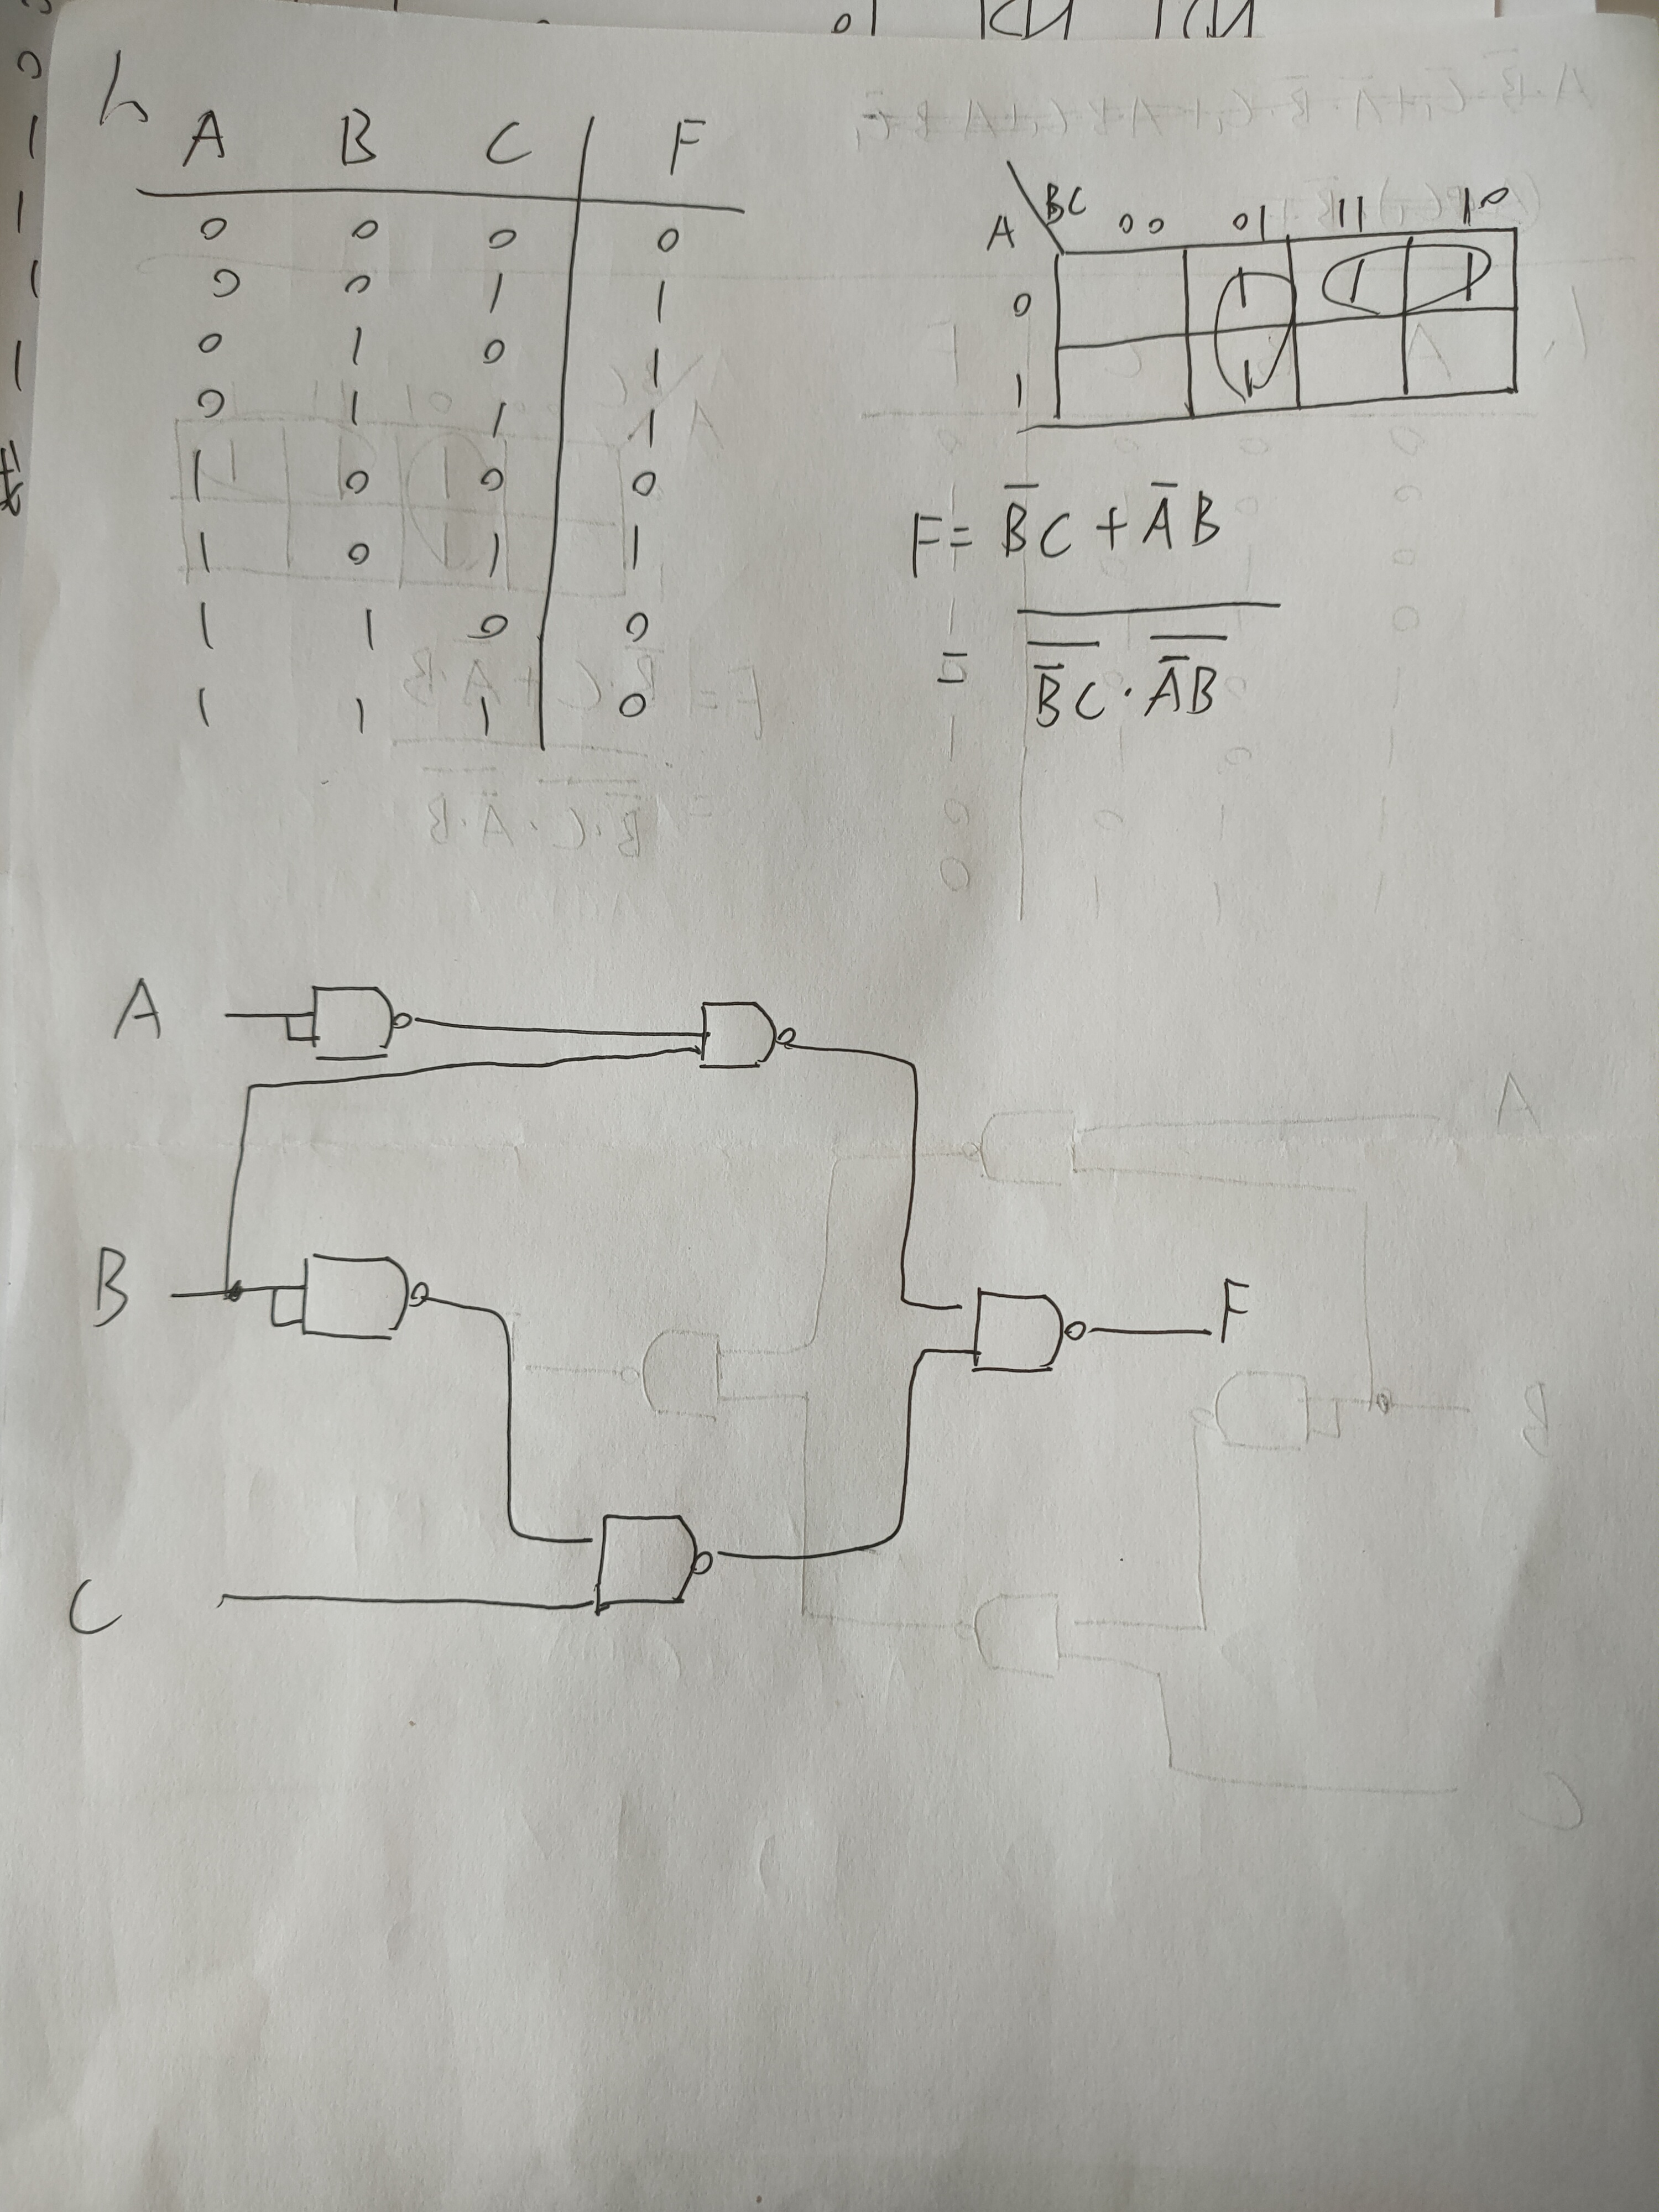 1,
A B C F
0 0 0 0
0 0 1 1
0 1 0 1
0 1 1 1
1 0 0 0
1 0 1 1
1 1 0 0
1 1 1 0
A\BC 00 01 11 10
0 1 1 1
1 1
F = B̅C + A̅B
= \overline{\overline{B̅C} · \overline{A̅B}}
A
B
F
C